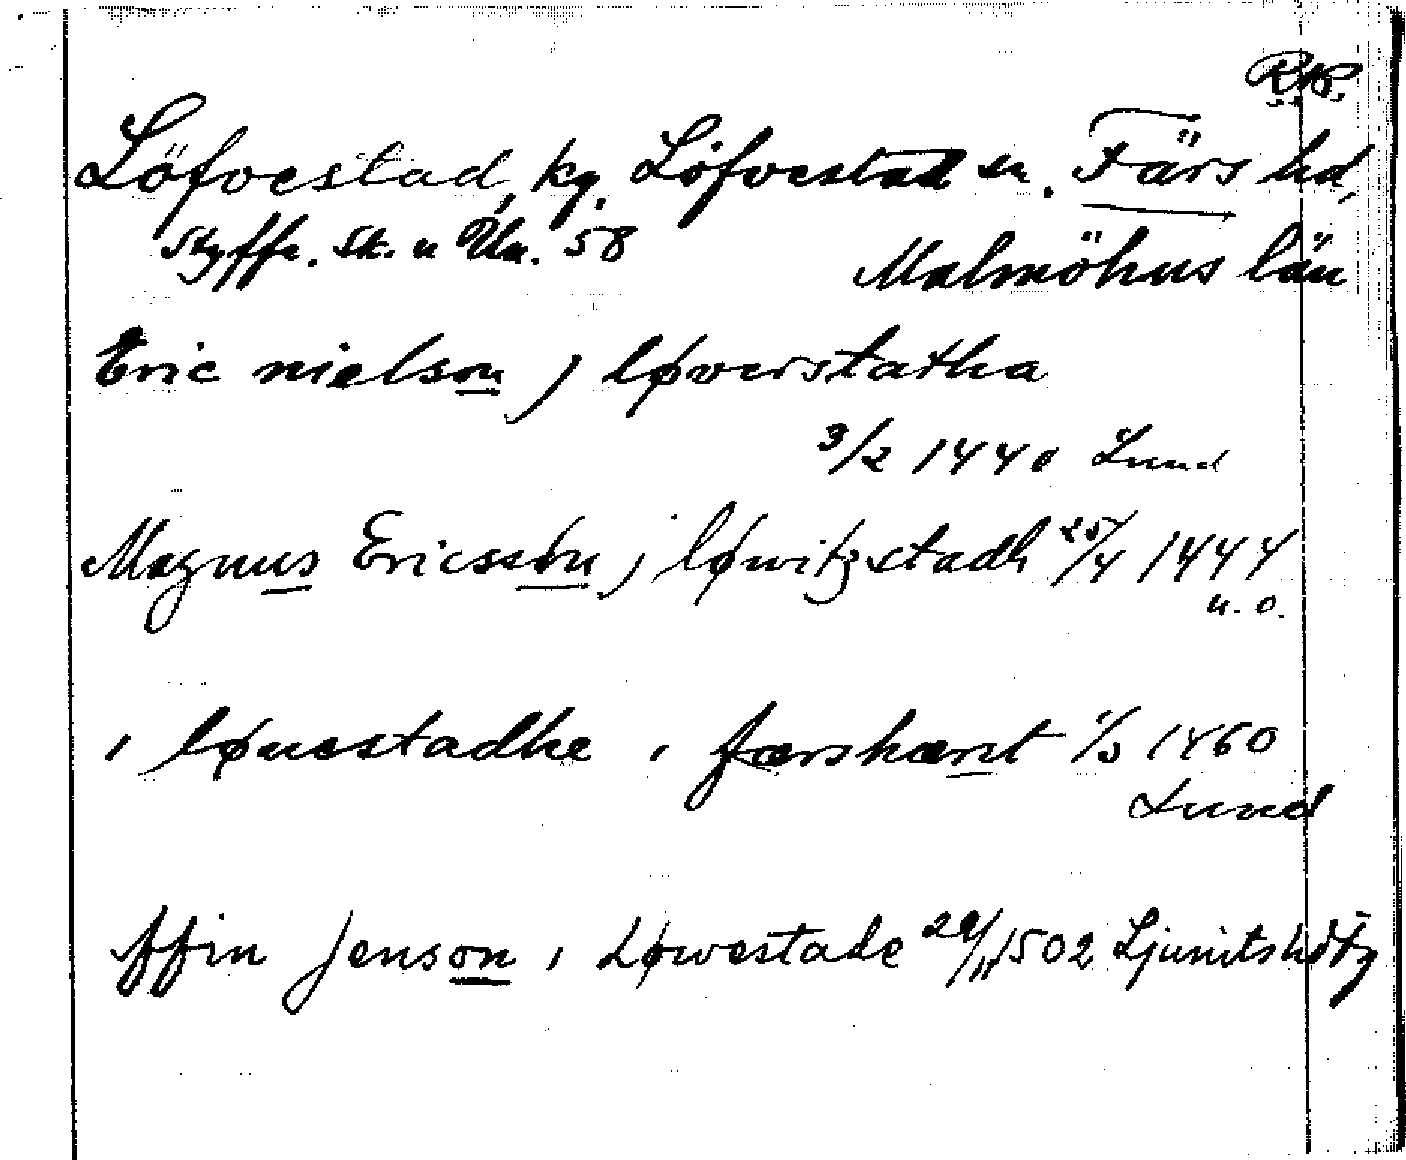 RAP.
Löfvestad, kg. Löfvestad sn. Färs hd,
Styffe. Sk. u Un. 58
Malmöhus län
Eric nielson j løverstatha
3/2 1440 Lund
Magnus Ericsson j løwitzstadh 25/4 1444
u. o.
i løuestadhe i færshæret 1/5 1460
Lund
ffin Jenson i Løwestade 29/11 1502 Ljunits hdtg